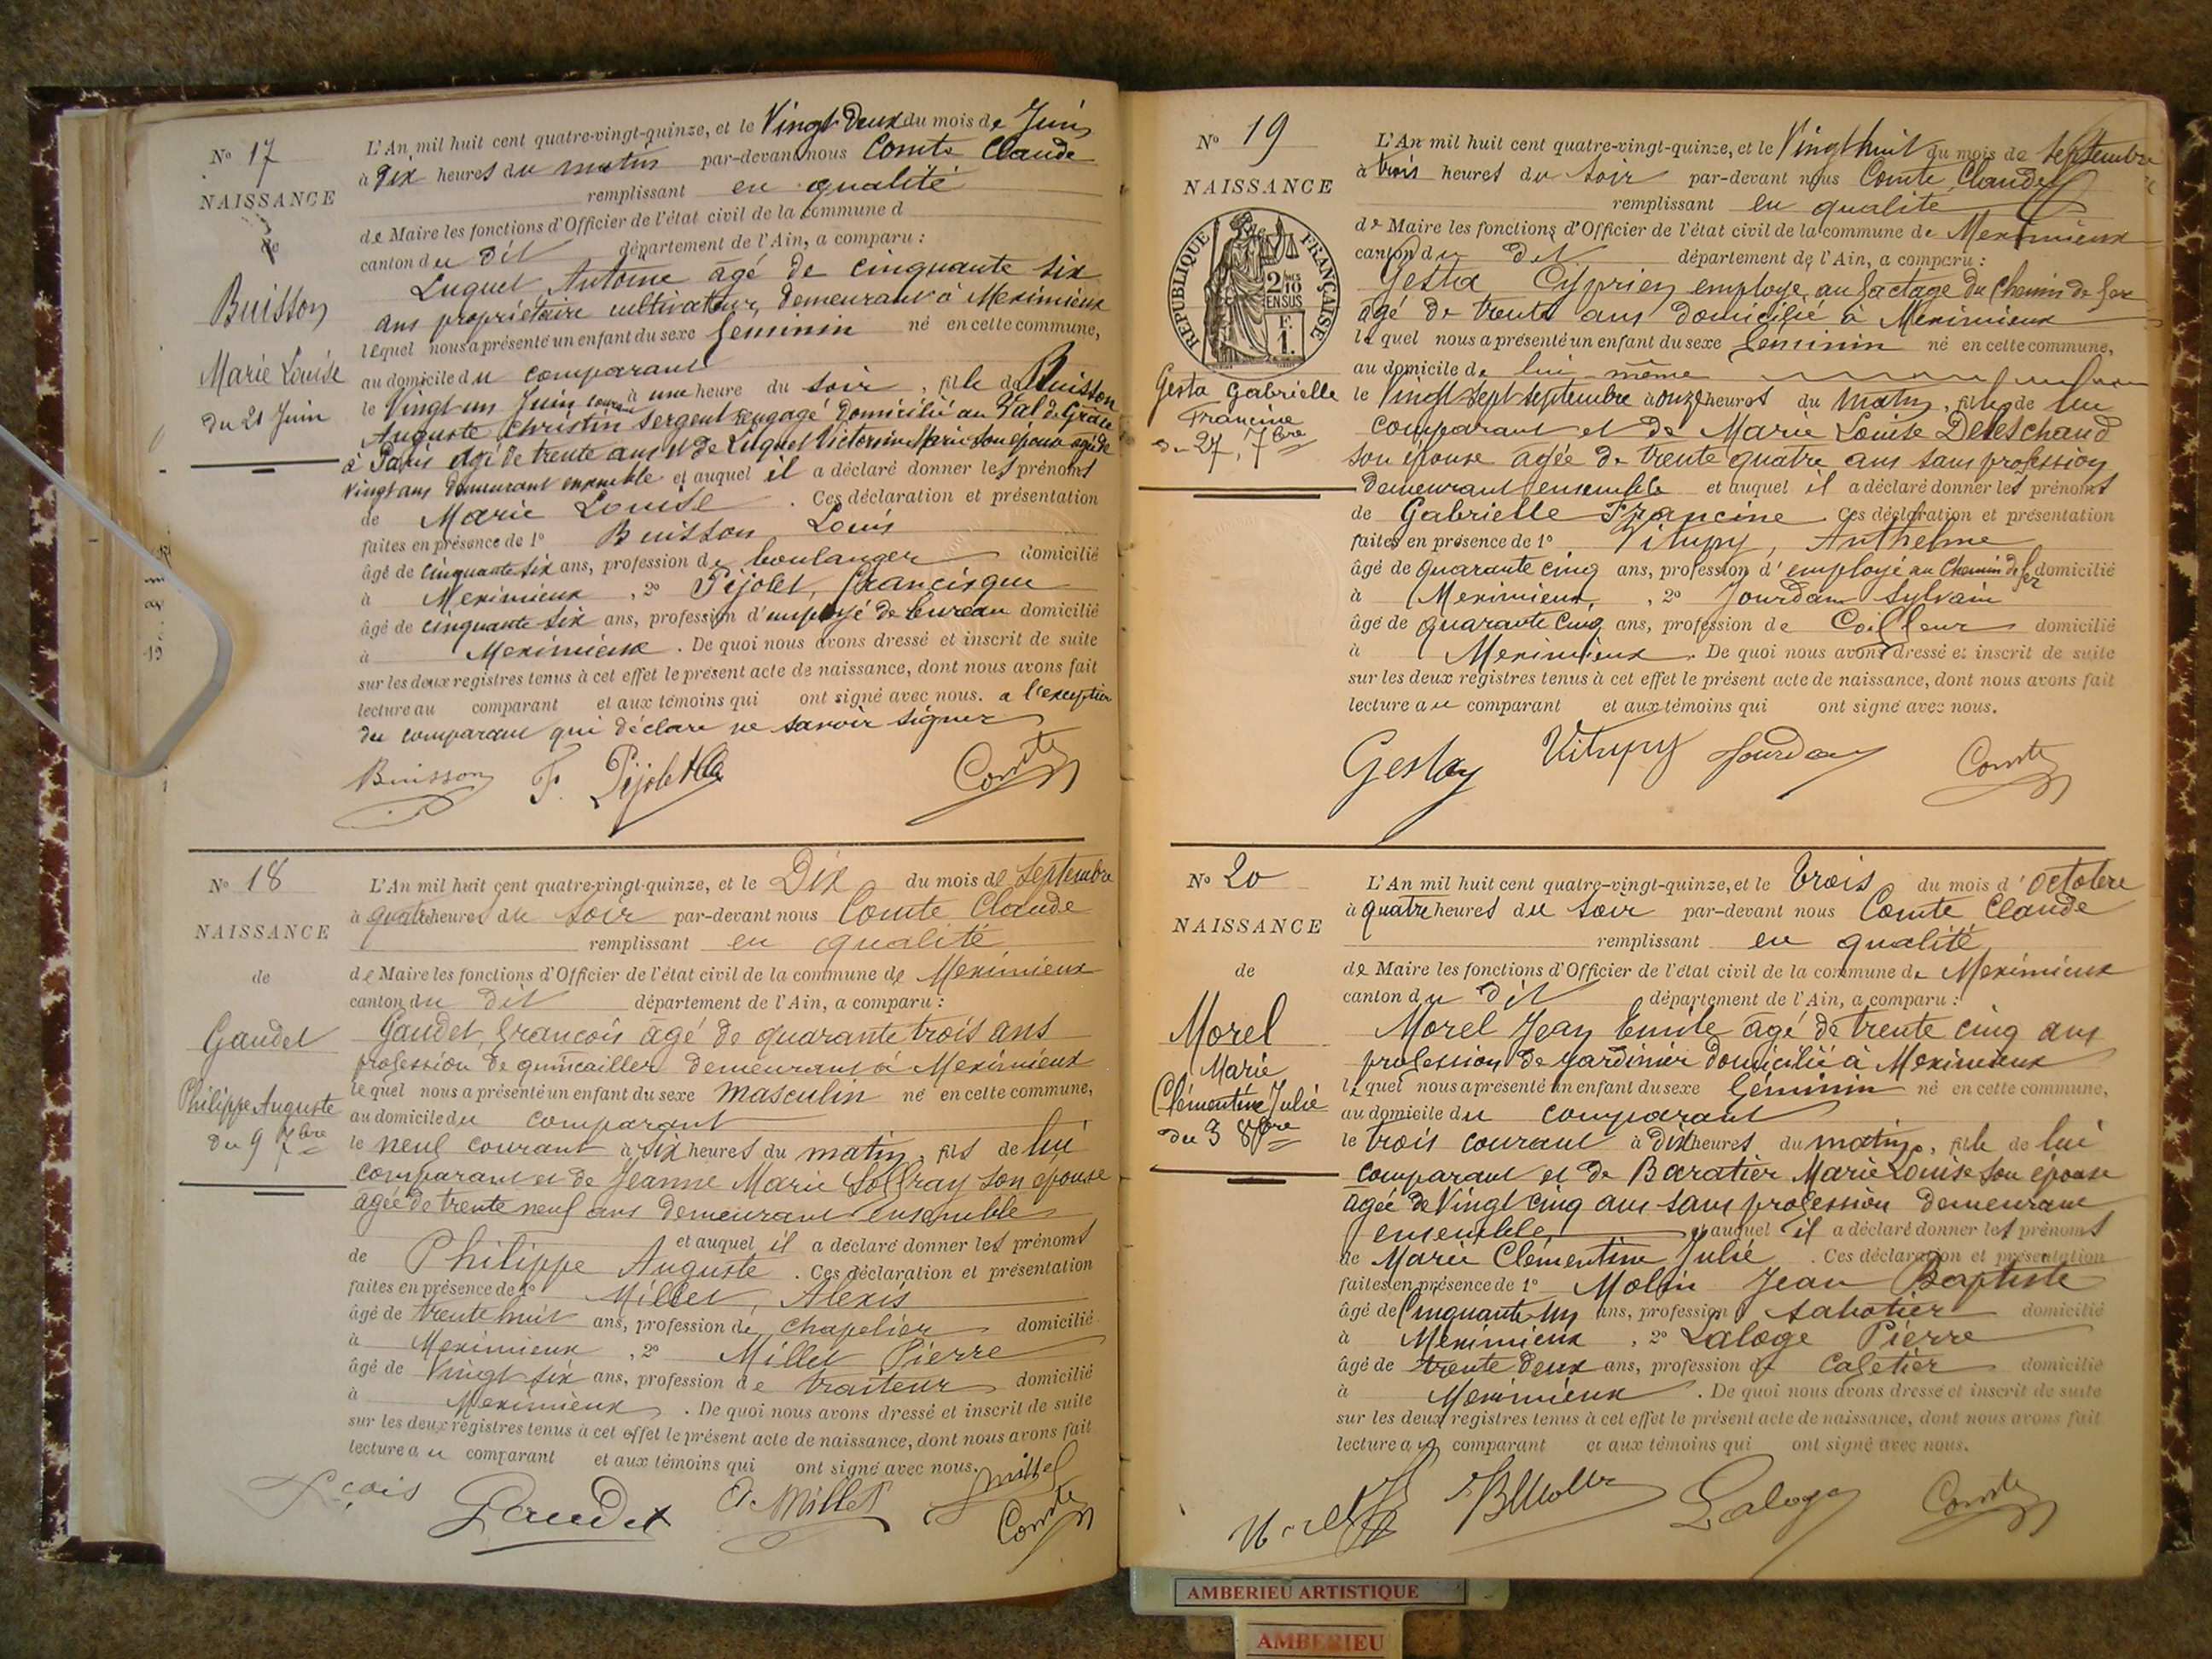 N° 17
NAISSANCE
de
Buisson
Marie Louise
du 21 Juin
L'An mil huit cent quatre-vingt-quinze, et le Vingt deux du mois de Juin
à Dix heures du matin par-devant nous Comte Claude
remplissant en qualité
de Maire les fonctions d'Officier de l'état civil de la commune d
canton du dit département de l'Ain, a comparu :
Luquet Antoine âgé de cinquante six
ans propriétaire cultivateur, demeurant à Meximieux
lequel nous a présenté un enfant du sexe feminin né en cette commune,
au domicile du comparant
le Vingt un Juin à une heure du soir, fille de Buisson
Auguste Christin sergent rengagé domicilié au Val de Grâce
à Paris âgé de trente ans et de Luquet Victorine Marie son épouse agée de
vingt ans demeurant ensemble et auquel il a déclaré donner les prénoms
de Marie Louise . Ces déclaration et présentation
faites en présence de 1° Buisson Louis
âgé de cinquante six ans, profession de boulanger domicilié
à Meximieux , 2° Pijolet, Francisque
âgé de cinquante six ans, profession d'employé de bureau domicilié
à Meximieux . De quoi nous avons dressé et inscrit de suite
sur les deux registres tenus à cet effet le présent acte de naissance, dont nous avons fait
lecture au comparant et aux témoins qui ont signé avec nous. a l'exception
du comparant qui déclare ne savoir signer
Buisson F. Pijolet Comte
N° 18
NAISSANCE
de
Gaudet
Philippe Auguste
du 9 7bre
L'An mil huit cent quatre-vingt-quinze, et le Dix du mois de Septembre
à quatre heures du soir par-devant nous Comte Claude
remplissant en qualité
de Maire les fonctions d'Officier de l'état civil de la commune de Meximieux
canton du dit département de l'Ain, a comparu :
Gaudet, François âgé de quarante trois ans
profession de quincailler demeurant à Meximieux
lequel nous a présenté un enfant du sexe masculin né en cette commune,
au domicile du comparant
le neuf courant à six heures du matin, fils de lui
comparant et de Jeanne Marie Solfray son epouse
agée de trente neuf ans demeurant ensemble
et auquel il a déclaré donner les prénoms
de Philippe Auguste . Ces déclaration et présentation
faites en présence de 1° Millet, Alexis
âgé de trente huit ans, profession de chapelier domicilié
à Meximieux , 2° Millet Pierre
âgé de Vingt six ans, profession de traiteur domicilié
à Meximieux . De quoi nous avons dressé et inscrit de suite
sur les deux registres tenus à cet effet le présent acte de naissance, dont nous avons fait
lecture au comparant et aux témoins qui ont signé avec nous.
Fçois Gaudet A. Millet Millet
Comte
N° 19
NAISSANCE
REPUBLIQUE FRANÇAISE
2/10 EN SUS
F. 1.
Gesta Gabrielle
Francine
du 27, 7bre
L'An mil huit cent quatre-vingt-quinze, et le Vingt huit du mois de Septembre
à trois heures du soir par-devant nous Comte Claude
remplissant en qualité
de Maire les fonctions d'Officier de l'état civil de la commune de Meximieux
canton du dit département de l'Ain, a comparu :
Gesta Cyprien employé au factage du Chemin de fer
âgé de trente ans domicilié à Meximieux
lequel nous a présenté un enfant du sexe feminin né en cette commune,
au domicile de lui-même
le Vingt sept septembre à onze heures du matin, fille de lui
comparant et de Marie Louise Deleschaud
son épouse agée de trente quatre ans sans profession
demeurant ensemble et auquel il a déclaré donner les prénoms
de Gabrielle Francine . Ces déclaration et présentation
faites en présence de 1° Vitupy, Anthelme
âgé de quarante cinq ans, profession d'employé au Chemin de fer domicilié
à Meximieux, , 2° Jourdan Sylvain
âgé de quarante cinq ans, profession de Coiffeur domicilié
à Meximieux . De quoi nous avons dressé et inscrit de suite
sur les deux registres tenus à cet effet le présent acte de naissance, dont nous avons fait
lecture au comparant et aux témoins qui ont signé avec nous.
Gesta Vitupy Jourdan Comte
N° 20
NAISSANCE
de
Morel
Marie
Clémentine Julie
du 3 8bre
L'An mil huit cent quatre-vingt-quinze, et le trois du mois d'Octobre
à quatre heures du soir par-devant nous Comte Claude
remplissant en qualité
de Maire les fonctions d'Officier de l'état civil de la commune de Meximieux
canton du dit département de l'Ain, a comparu :
Morel Jean Emile âgé de trente cinq ans
profession de jardinier domicilié à Meximieux
lequel nous a présenté un enfant du sexe féminin né en cette commune,
au domicile du comparant
le trois courant à dix heures du matin, fille de lui
comparant et de Baratier Marie Louise son épouse
âgée de Vingt cinq ans sans profession demeurant
ensemble, et auquel il a déclaré donner les prénoms
de Marie Clémentine Julie . Ces déclaration et présentation
faites en présence de 1° Mollin Jean Baptiste
âgé de Cinquante un ans, profession sabotier domicilié
à Meximieux , 2° Laloge Pierre
âgé de trente deux ans, profession de cafetier domicilié
à Meximieux . De quoi nous avons dressé et inscrit de suite
sur les deux registres tenus à cet effet le présent acte de naissance, dont nous avons fait
lecture au comparant et aux témoins qui ont signé avec nous.
Morel Laloge Comte
AMBERIEU ARTISTIQUE
AMBERIEU